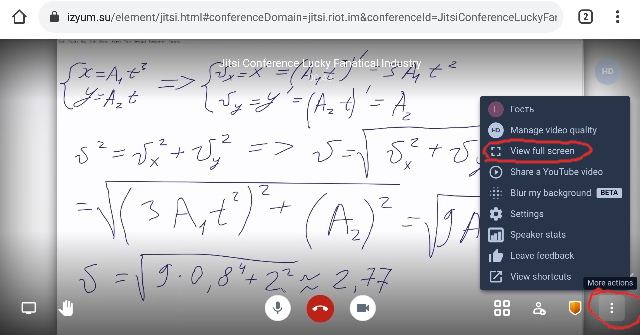 izyum.su/element/jitsi.html#conferenceDomain=jitsi.riot.im&conferenceId=JitsiConferenceLuckyFan
2
Jitsi Conference Lucky Fanatical Industry
HD
{x=A₁t³ => {υx=x'=(A₁t³)'=3A₁t²
{y=A₂t {υy=y'=(A₂t)'=A₂
υ²=υx²+υy² => υ=√υx²+υy
=√(3A₁t²)²+(A₂)²=√9A
υ=√9·0,8⁴+2²≈2,77
Гость
HD Manage video quality
View full screen
Share a YouTube video
Blur my background BETA
Settings
Speaker stats
Leave feedback
View shortcuts
More actions